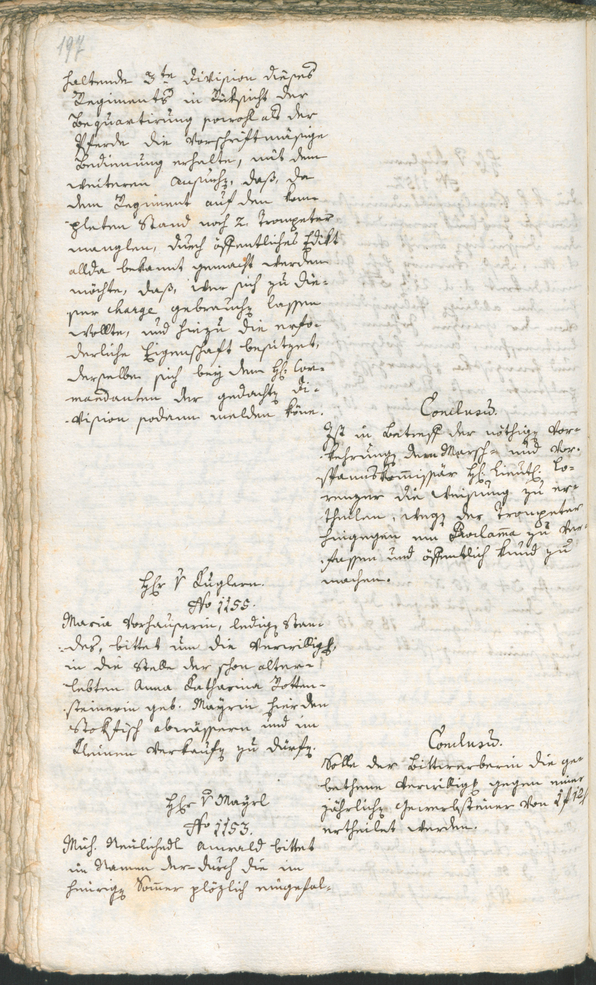 197
haltende 3te Division dieses
Regiments in Rüksicht der
Bequartirung sowohl als der
Pferde die vorschriftmäsige
Bedienung erhalte, mit dem
weiteren Ansuchen, daß, da
dem Regiment auf den kom-
pleten Stand noch 2 Trompeter
manglen, durch öffentliches Edikt
allda bekannt gemacht werden
möchte, daß, wer sich zu die-
ser charge gebrauchen lassen
wollte, und hinzu die erfo-
derliche Eigenschaft besitzet,
derselbe sich bey dem H: Com-
mandanten der gedachten Di-
vision sodann melden köne.
Conclusum.
Ist in Betreff der nöthigen Vor-
kehrung dem Marsch- und Vor-
spannskommissär H: Lieut: Lo-
renzer die Weisung zu er-
theilen, wegen der Trompeter
hingegen ein Proclama zu ver-
fassen und öffentlich kund zu
machen.
Hr v Kuglern.
No 1155.
Maria Vorhauserin, ledigen Stan-
des, bittet um die Verwilligung,
in die Stelle der schon alter-
lebten Anna Katharina Rotten-
steinerin geb: Mayrin hier den
Stokfisch abwässern und im
Kleinen verkaufen zu dürfen.
Conclusum.
Solle der Bittwerberin die ge-
bethene Verwilligung gegen einer
jährlichen Gewerbsteuer von
ertheilet werden.
Hr v Mayrl
No 1153.
Mich. Anwald bittet
im Namen der durch die im
heurigen Somer plözlich eingefal-